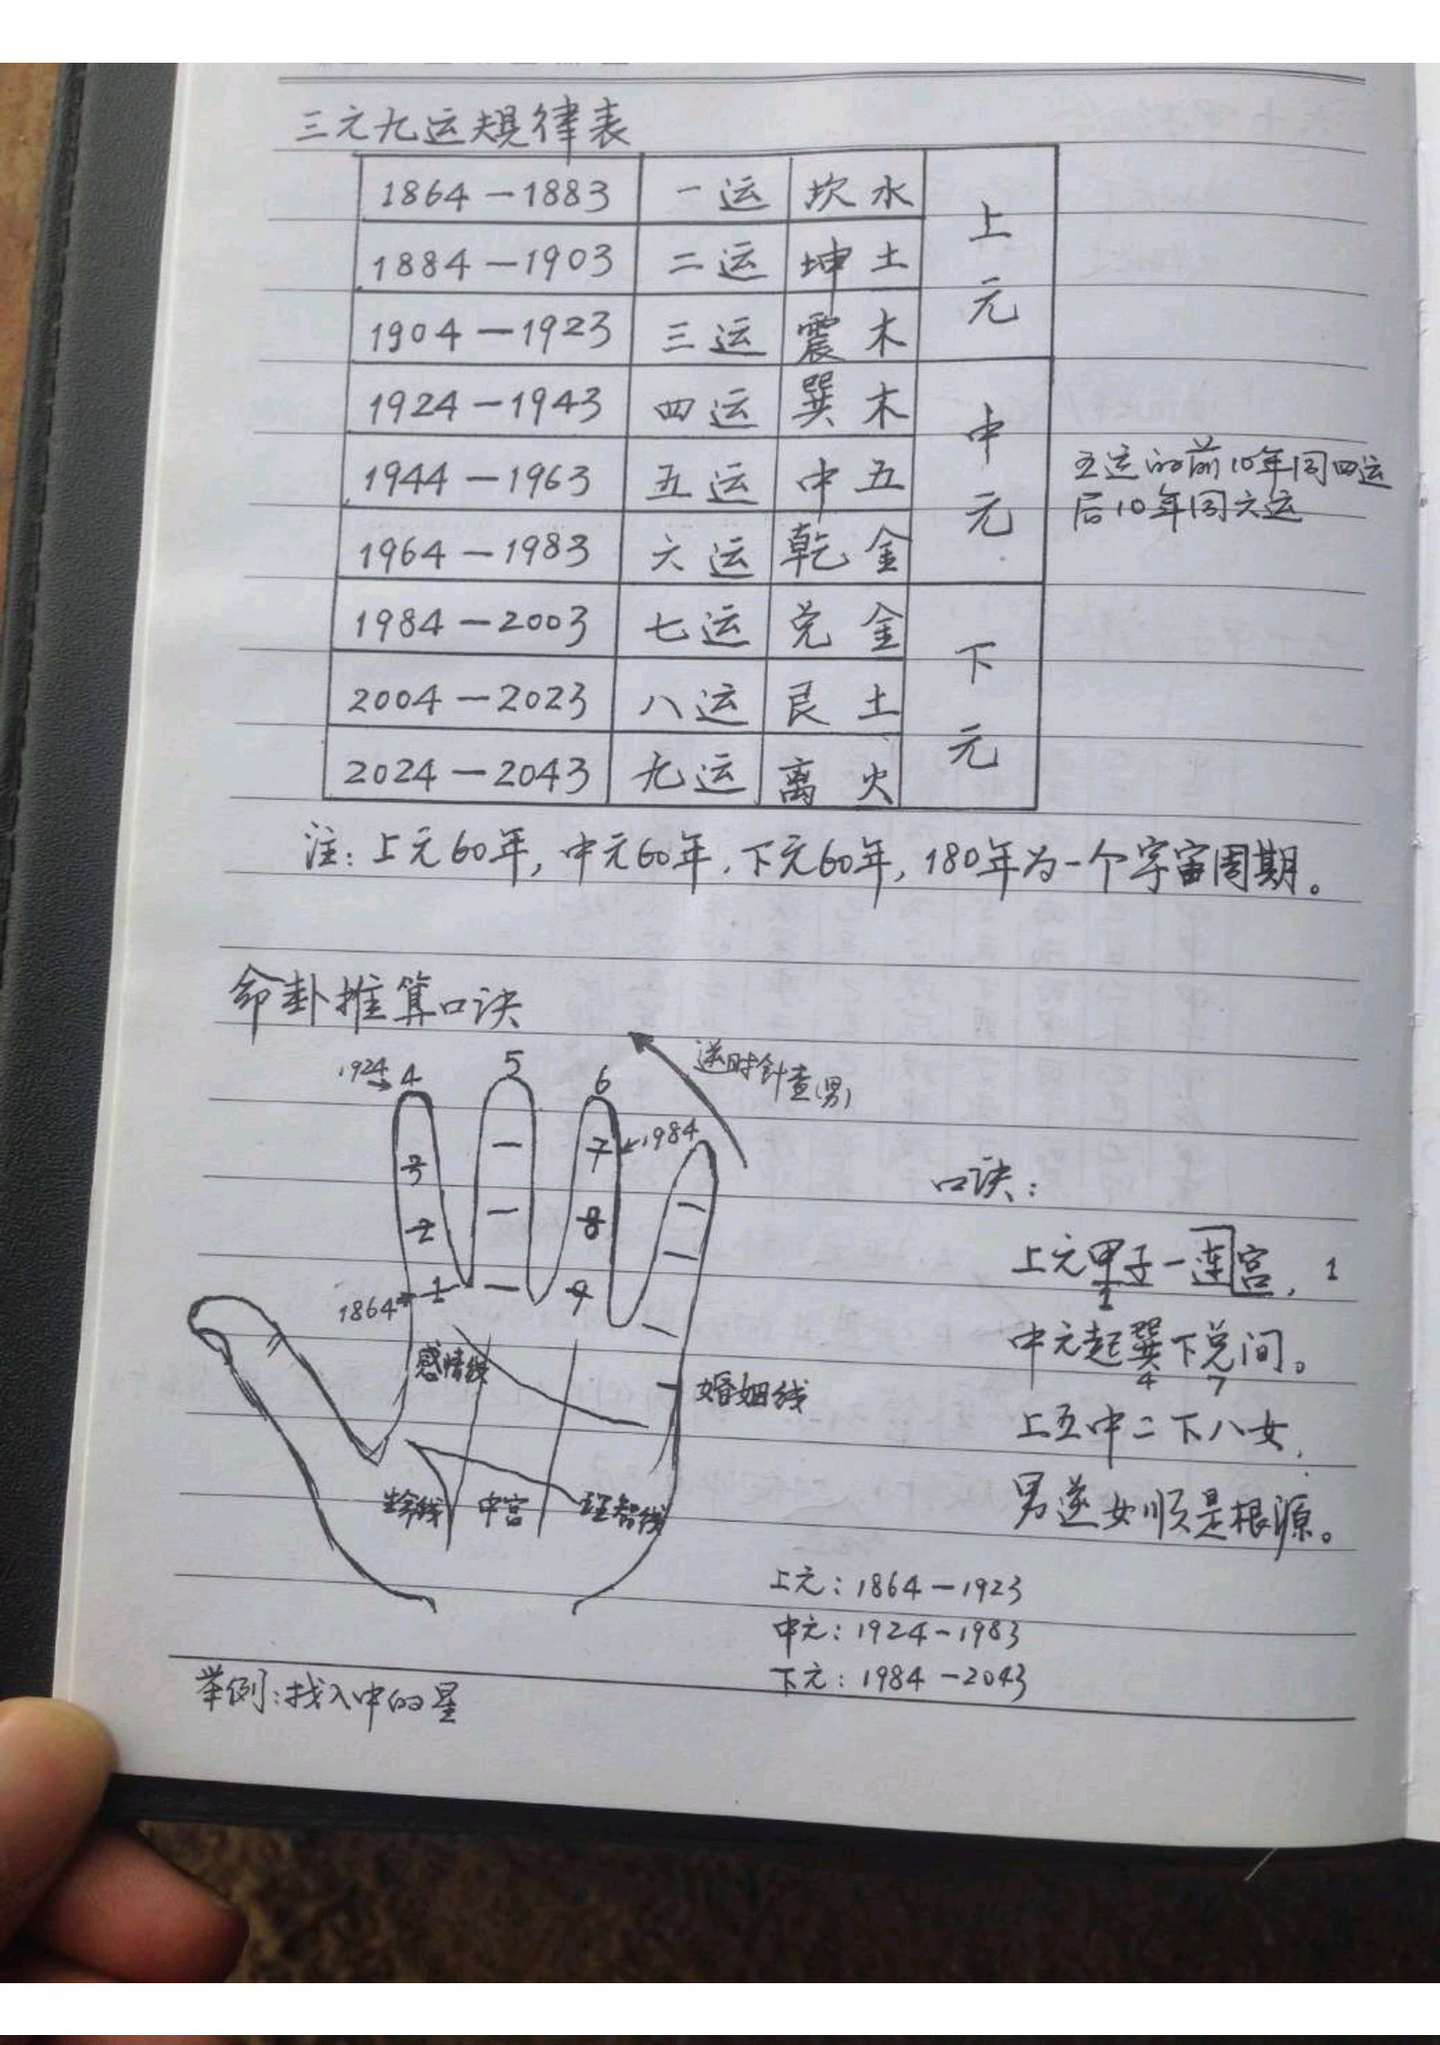 三元九运规律表
1864－1883 一运 坎水 上元
1884－1903 二运 坤土
1904－1923 三运 震木
1924－1943 四运 巽木 中元
1944－1963 五运 中五
1964－1983 六运 乾金
1984－2003 七运 兑金 下元
2004－2023 八运 艮土
2024－2043 九运 离火
五运的前10年同四运
后10年同六运
注:上元60年,中元60年,下元60年,180年为一个宇宙周期。
命卦推算口诀
逆时针查(男)
1924→4
5
6
3
7 ←1984
2
8
1864→1
9
感情线
婚姻线
生命线
中宫
理智线
口诀:
上元甲子一连宫, 1
1
中元起巽下兑间。
4 7
上五中二下八女,
男逆女顺是根源。
上元:1864－1923
中元:1924－1983
下元:1984－2043
举例:找入中的星